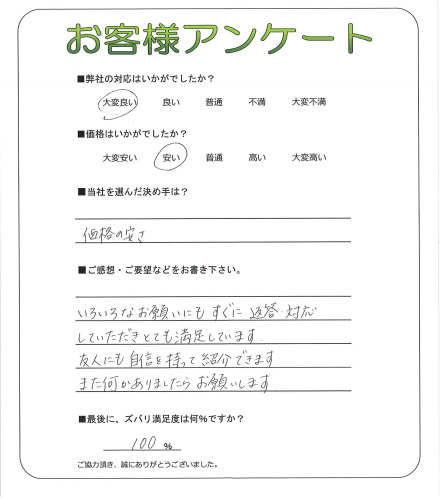 お客様アンケート
■弊社の対応はいかがでしたか？
大変良い 良い 普通 不満 大変不満
■価格はいかがでしたか？
大変安い 安い 普通 高い 大変高い
■当社を選んだ決め手は？
価格の安さ
■ご感想・ご要望などをお書き下さい。
いろいろなお願いにもすぐに返答・対応
していただきとても満足しています
友人にも自信を持って紹介できます
また何かありましたらお願いします
■最後に、ズバリ満足度は何%ですか？
100 %
ご協力頂き、誠にありがとうございました。